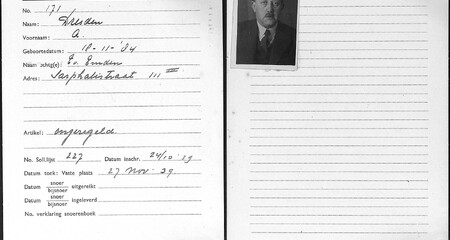 No. 171
Naam: Dresden
Voornaam: A
Geboortedatum: 18-11-'84
Naam echtg(e): Ev. Emden
Adres: Sarphatistraat 111 III
Artikel: ongeregeld.
No. Soll.lijst 227 Datum inschr. 24/10 '39
Datum toek: Vaste plaats 27 Nov. 39
Datum snoer
bijsnoer uitgereikt
Datum snoer
bijsnoer ingeleverd
No. verklaring snoerenboek